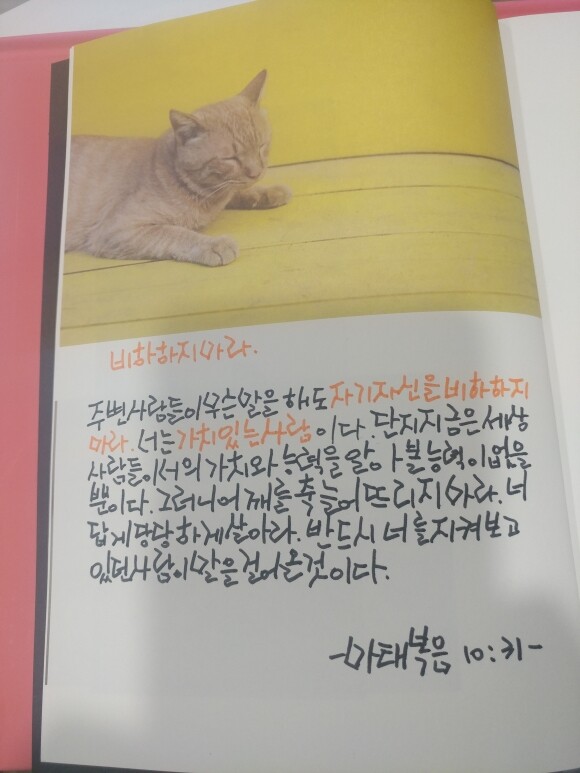 비하하지 마라.
주변사람들이 무슨 말을 해도 자기자신을 비하하지
마라. 너는 가치있는사람 이다. 단지지금은 세상
사람들이 너의 가치와 능력을 알아볼 능력이 없을
뿐이다. 그러니 어깨를 축 늘어 뜨리지 마라. 너
답게 당당하게 살아라. 반드시 너를 지켜보고
있던사람이 말을 걸어 올것 이다.
-마태복음 10:31-